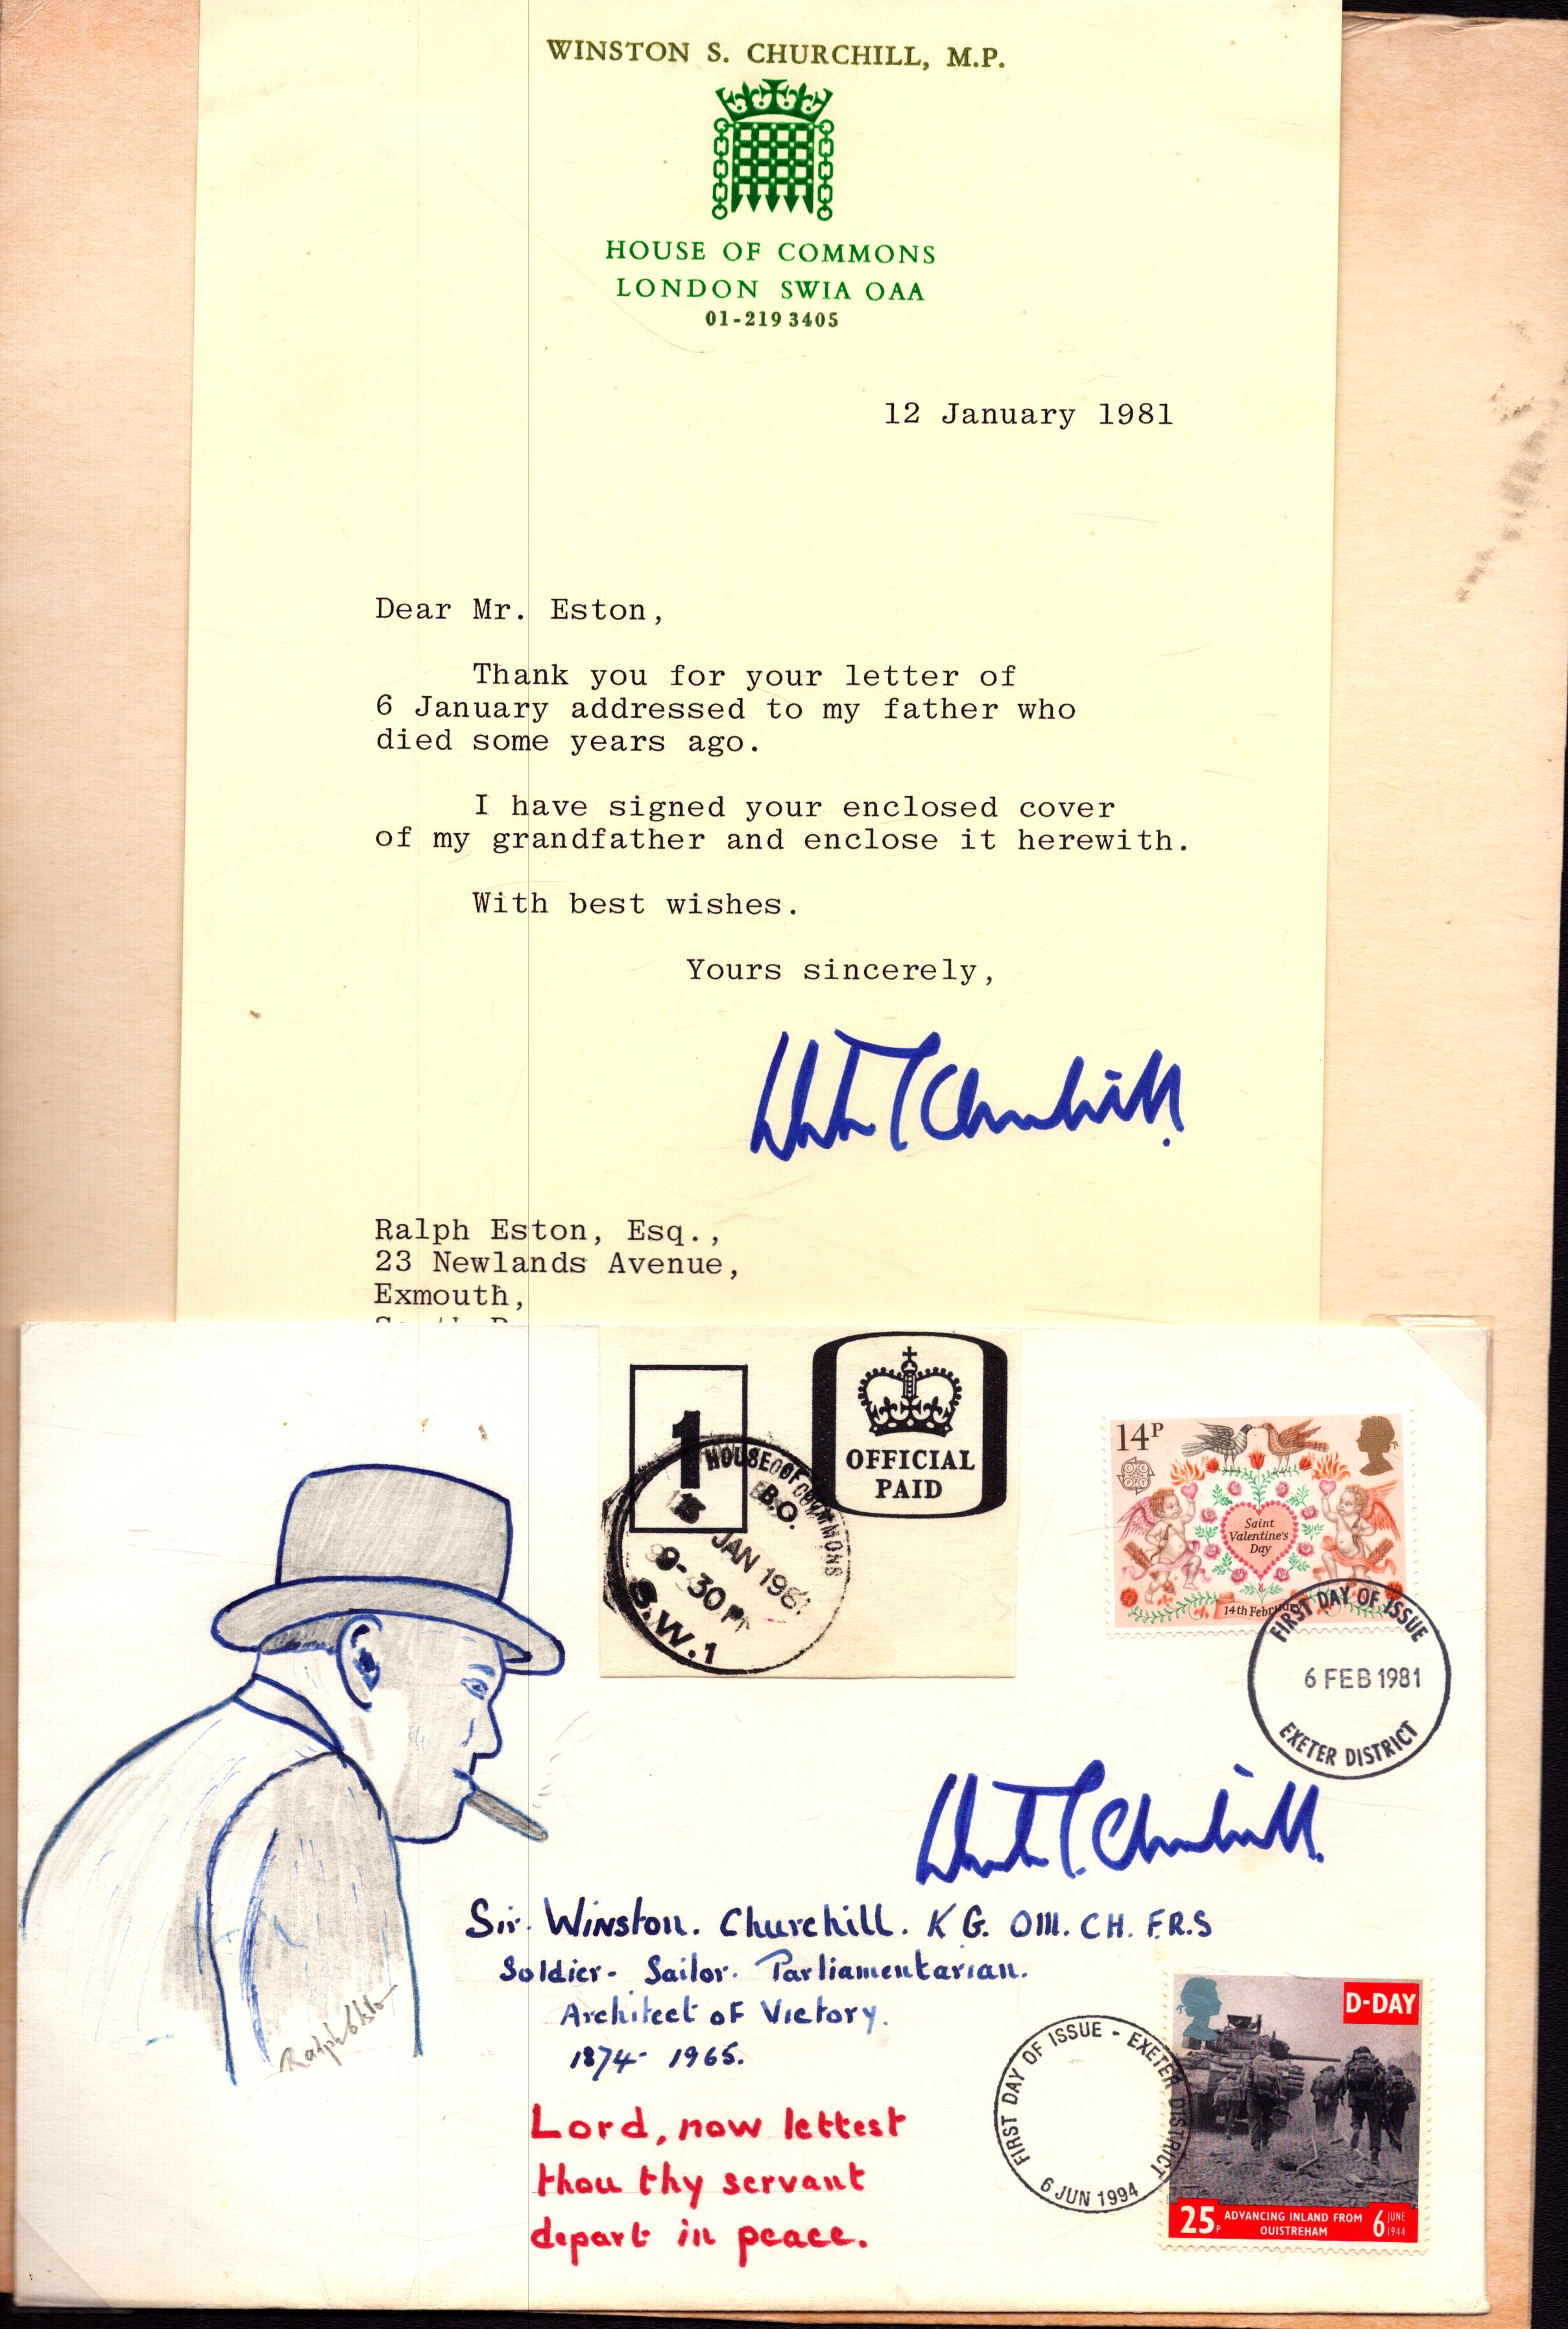 WINSTON S. CHURCHILL, M.P.
HOUSE OF COMMONS
LONDON SW1A OAA
01-219 3405
12 January 1981
Dear Mr. Eston,
Thank you for your letter of
6 January addressed to my father who
died some years ago.
I have signed your enclosed cover
of my grandfather and enclose it herewith.
With best wishes.
Yours sincerely,
Churchill
Ralph Eston, Esq.,
23 Newlands Avenue,
Exmouth,
1
OFFICIAL
PAID
HOUSE OF COMMONS
B.O.
JAN 1981
S.W.1
14P
Saint
Valentine's
Day
14th
FIRST DAY OF ISSUE
6 FEB 1981
EXETER DISTRICT
Churchill
Sir. Winston. Churchill. KG. OM. CH. F.R.S
Soldier- Sailor. Parliamentarian.
Architect of Victory.
1874- 1965.
Lord, now lettest
thou thy servant
depart in peace.
Ralph Eston
FIRST DAY OF ISSUE - EXETER DISTRICT
6 JUN 1994
D-DAY
25P ADVANCING INLAND FROM
OUISTREHAM
6 JUNE
1944